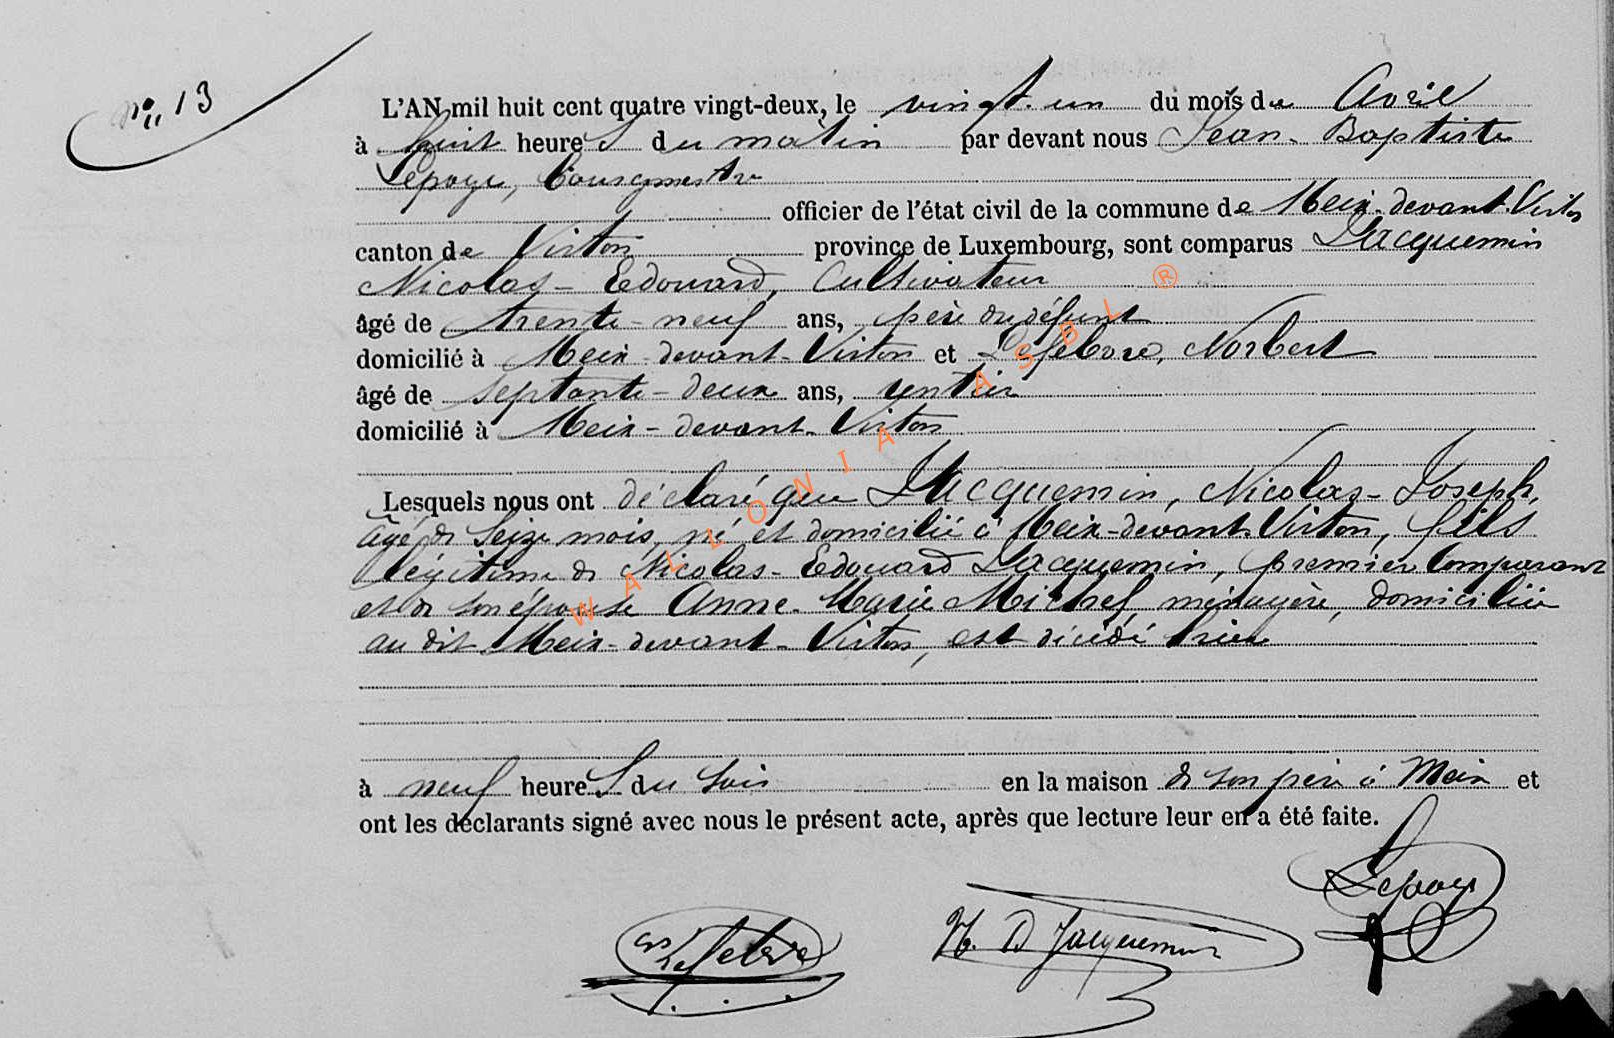 N° 13
L'AN mil huit cent quatre vingt-deux, le vingt-un du mois du Avril
à huit heures du matin par devant nous Jean-Baptiste
Lepage, bourgmestre
officier de l'état civil de la commune de Meix-devant-Virton
canton de Virton province de Luxembourg, sont comparus Jacquemin
Nicolas-Edouard, Cultivateur
âgé de trente-neuf ans, père du défunt
domicilié à Meix-devant-Virton et Lefebvre, Norbert
âgé de septante-deux ans, rentier
domicilié à Meix-devant-Virton
Lesquels nous ont déclaré que Jacquemin, Nicolas-Joseph,
âgé de seize mois, né et domicilié à Meix-devant-Virton, fils
légitime de Nicolas-Edouard Jacquemin, premier comparant
et de son épouse Anne-Marie Michel, ménagère, domiciliée
au dit Meix-devant-Virton, est décédé hier
à neuf heures du soir en la maison de son père à Meix et
ont les déclarants signé avec nous le présent acte, après que lecture leur en a été faite.
Lefebvre N. D Jacquemin Lepage
WALLONIA ASBL ®